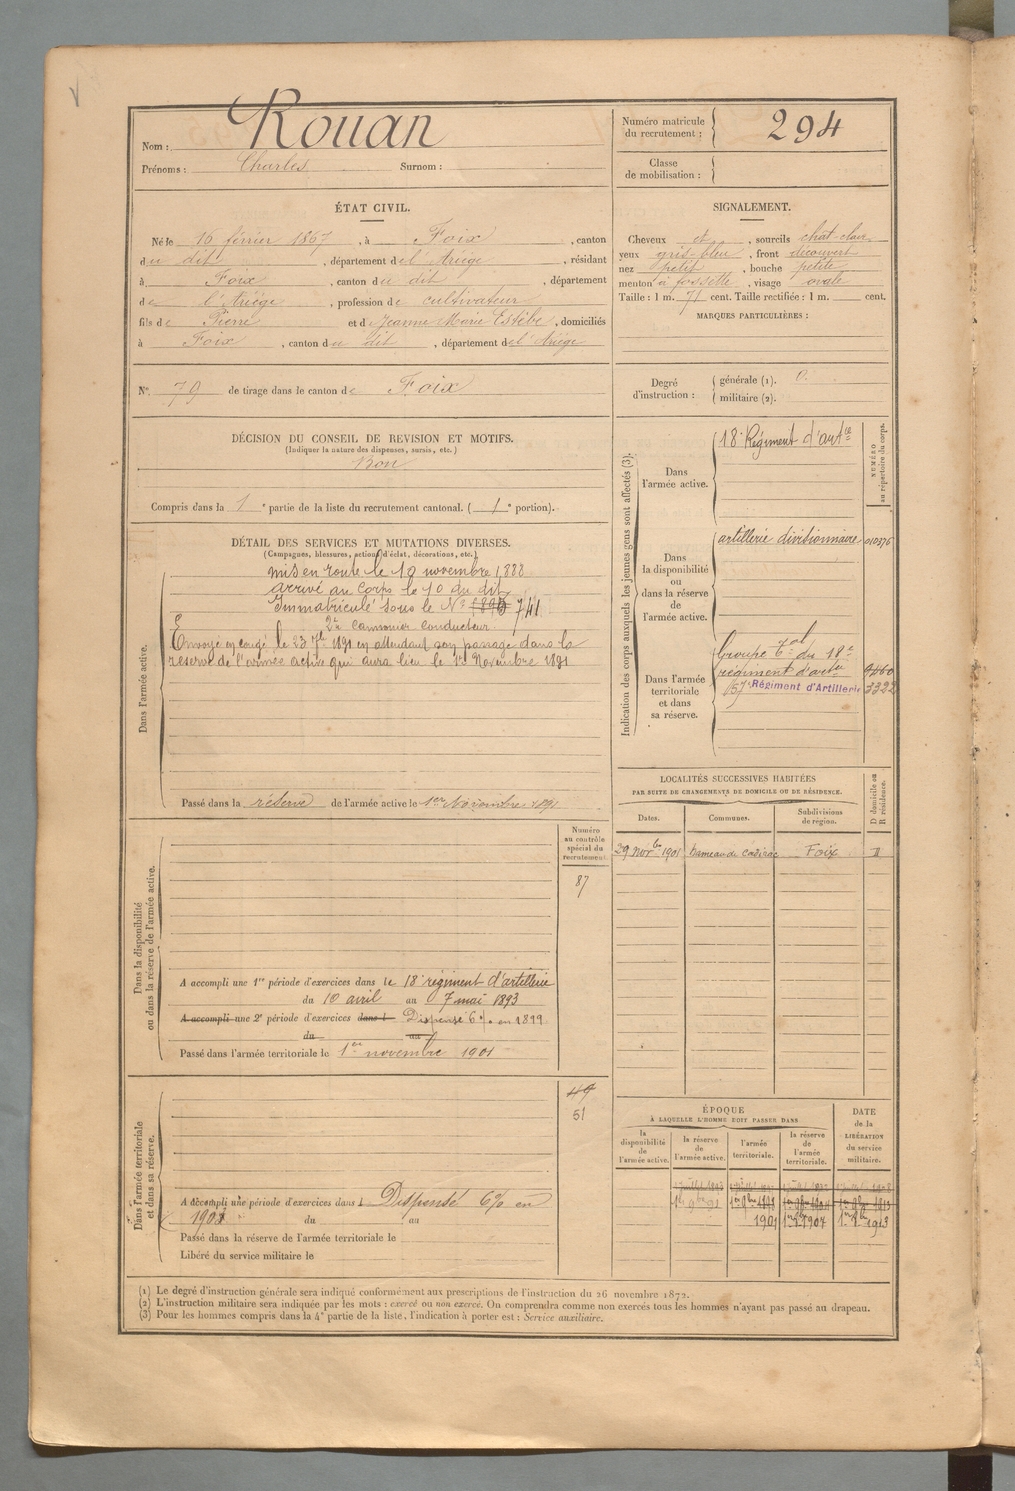 Nom : Rouan
Prénoms : Charles Surnom :
Numéro matricule du recrutement : 294
Classe de mobilisation :
ÉTAT CIVIL.
Né le 16 février 1867, à Foix, canton
du dit, département de l'Ariège, résidant
à Foix, canton du dit, département
de l'Ariège, profession de cultivateur
fils de Pierre et de Jeanne Marie Estèbe, domiciliés
à Foix, canton du dit, département de l'Ariège
SIGNALEMENT.
Cheveux et, sourcils chat-clair,
yeux gris-bleu, front découvert
nez petit, bouche petite
menton à fossette, visage ovale
Taille : 1 m. 71 cent. Taille rectifiée : 1 m. cent.
MARQUES PARTICULIÈRES :
N° 79 de tirage dans le canton de Foix
Degré d'instruction : générale (1). 0.
militaire (2).
DÉCISION DU CONSEIL DE REVISION ET MOTIFS.
(Indiquer la nature des dispenses, sursis, etc.)
Bon
Compris dans la 1e partie de la liste du recrutement cantonal. (1e portion).
DÉTAIL DES SERVICES ET MUTATIONS DIVERSES.
(Campagnes, blessures, actions d'éclat, décorations, etc.)
Dans l'armée active.
mis en route le 10 novembre 1888
arrivé au corps le 10 du dit
Immatriculé sous le N° 741
2e canonnier conducteur
Envoyé en congé le 23 7bre 1891 en attendant son passage dans la
réserve de l'armée active qui aura lieu le 1er Novembre 1891
Passé dans la réserve de l'armée active le 1er Novembre 1891
Indication des corps auxquels les jeunes gens sont affectés (3).
NUMÉRO au répertoire du corps.
Dans l'armée active.
18e Régiment d'artie
Dans la disponibilité ou dans la réserve de l'armée active.
artillerie divisionnaire 010376
Dans l'armée territoriale et dans sa réserve.
Groupe tal du 18e
régiment d'artie 9460
Régiment d'Artillerie 3322
LOCALITÉS SUCCESSIVES HABITÉES
PAR SUITE DE CHANGEMENTS DE DOMICILE OU DE RÉSIDENCE.
Dates. Communes. Subdivisions de région. D domicile ou R résidence.
29 novbre 1901 hameau de Cadirac Foix
Dans la disponibilité ou dans la réserve de l'armée active.
Numéro au contrôle spécial du recrutement.
87
A accompli une 1re période d'exercices dans le 18e régiment d'artillerie
du 10 avril au 7 mai 1893
A accompli une 2e période d'exercices dans l Dispensé 6% en 1899
du au
Passé dans l'armée territoriale le 1er novembre 1901
Dans l'armée territoriale et dans sa réserve.
49
51
A accompli une période d'exercices dans l Dispensé 6% en
du au
Passé dans la réserve de l'armée territoriale le
Libéré du service militaire le
ÉPOQUE
À LAQUELLE L'HOMME DOIT PASSER DANS
DATE de la LIBÉRATION du service militaire.
la disponibilité de l'armée active.
la réserve de l'armée active.
l'armée territoriale.
la réserve de l'armée territoriale.
1901
(1) Le degré d'instruction générale sera indiqué conformément aux prescriptions de l'instruction du 26 novembre 1872.
(2) L'instruction militaire sera indiquée par les mots : exercé ou non exercé. On comprendra comme non exercés tous les hommes n'ayant pas passé au drapeau.
(3) Pour les hommes compris dans la 4e partie de la liste, l'indication à porter est : Service auxiliaire.